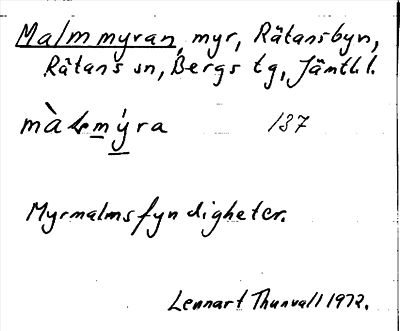 Malmmyran, myr, Rätansbyn,
Rätans sn, Bergs tg, Jämtl l.
137
Myrmalmsfyndigheter.
Lennart Thunvall 1972.